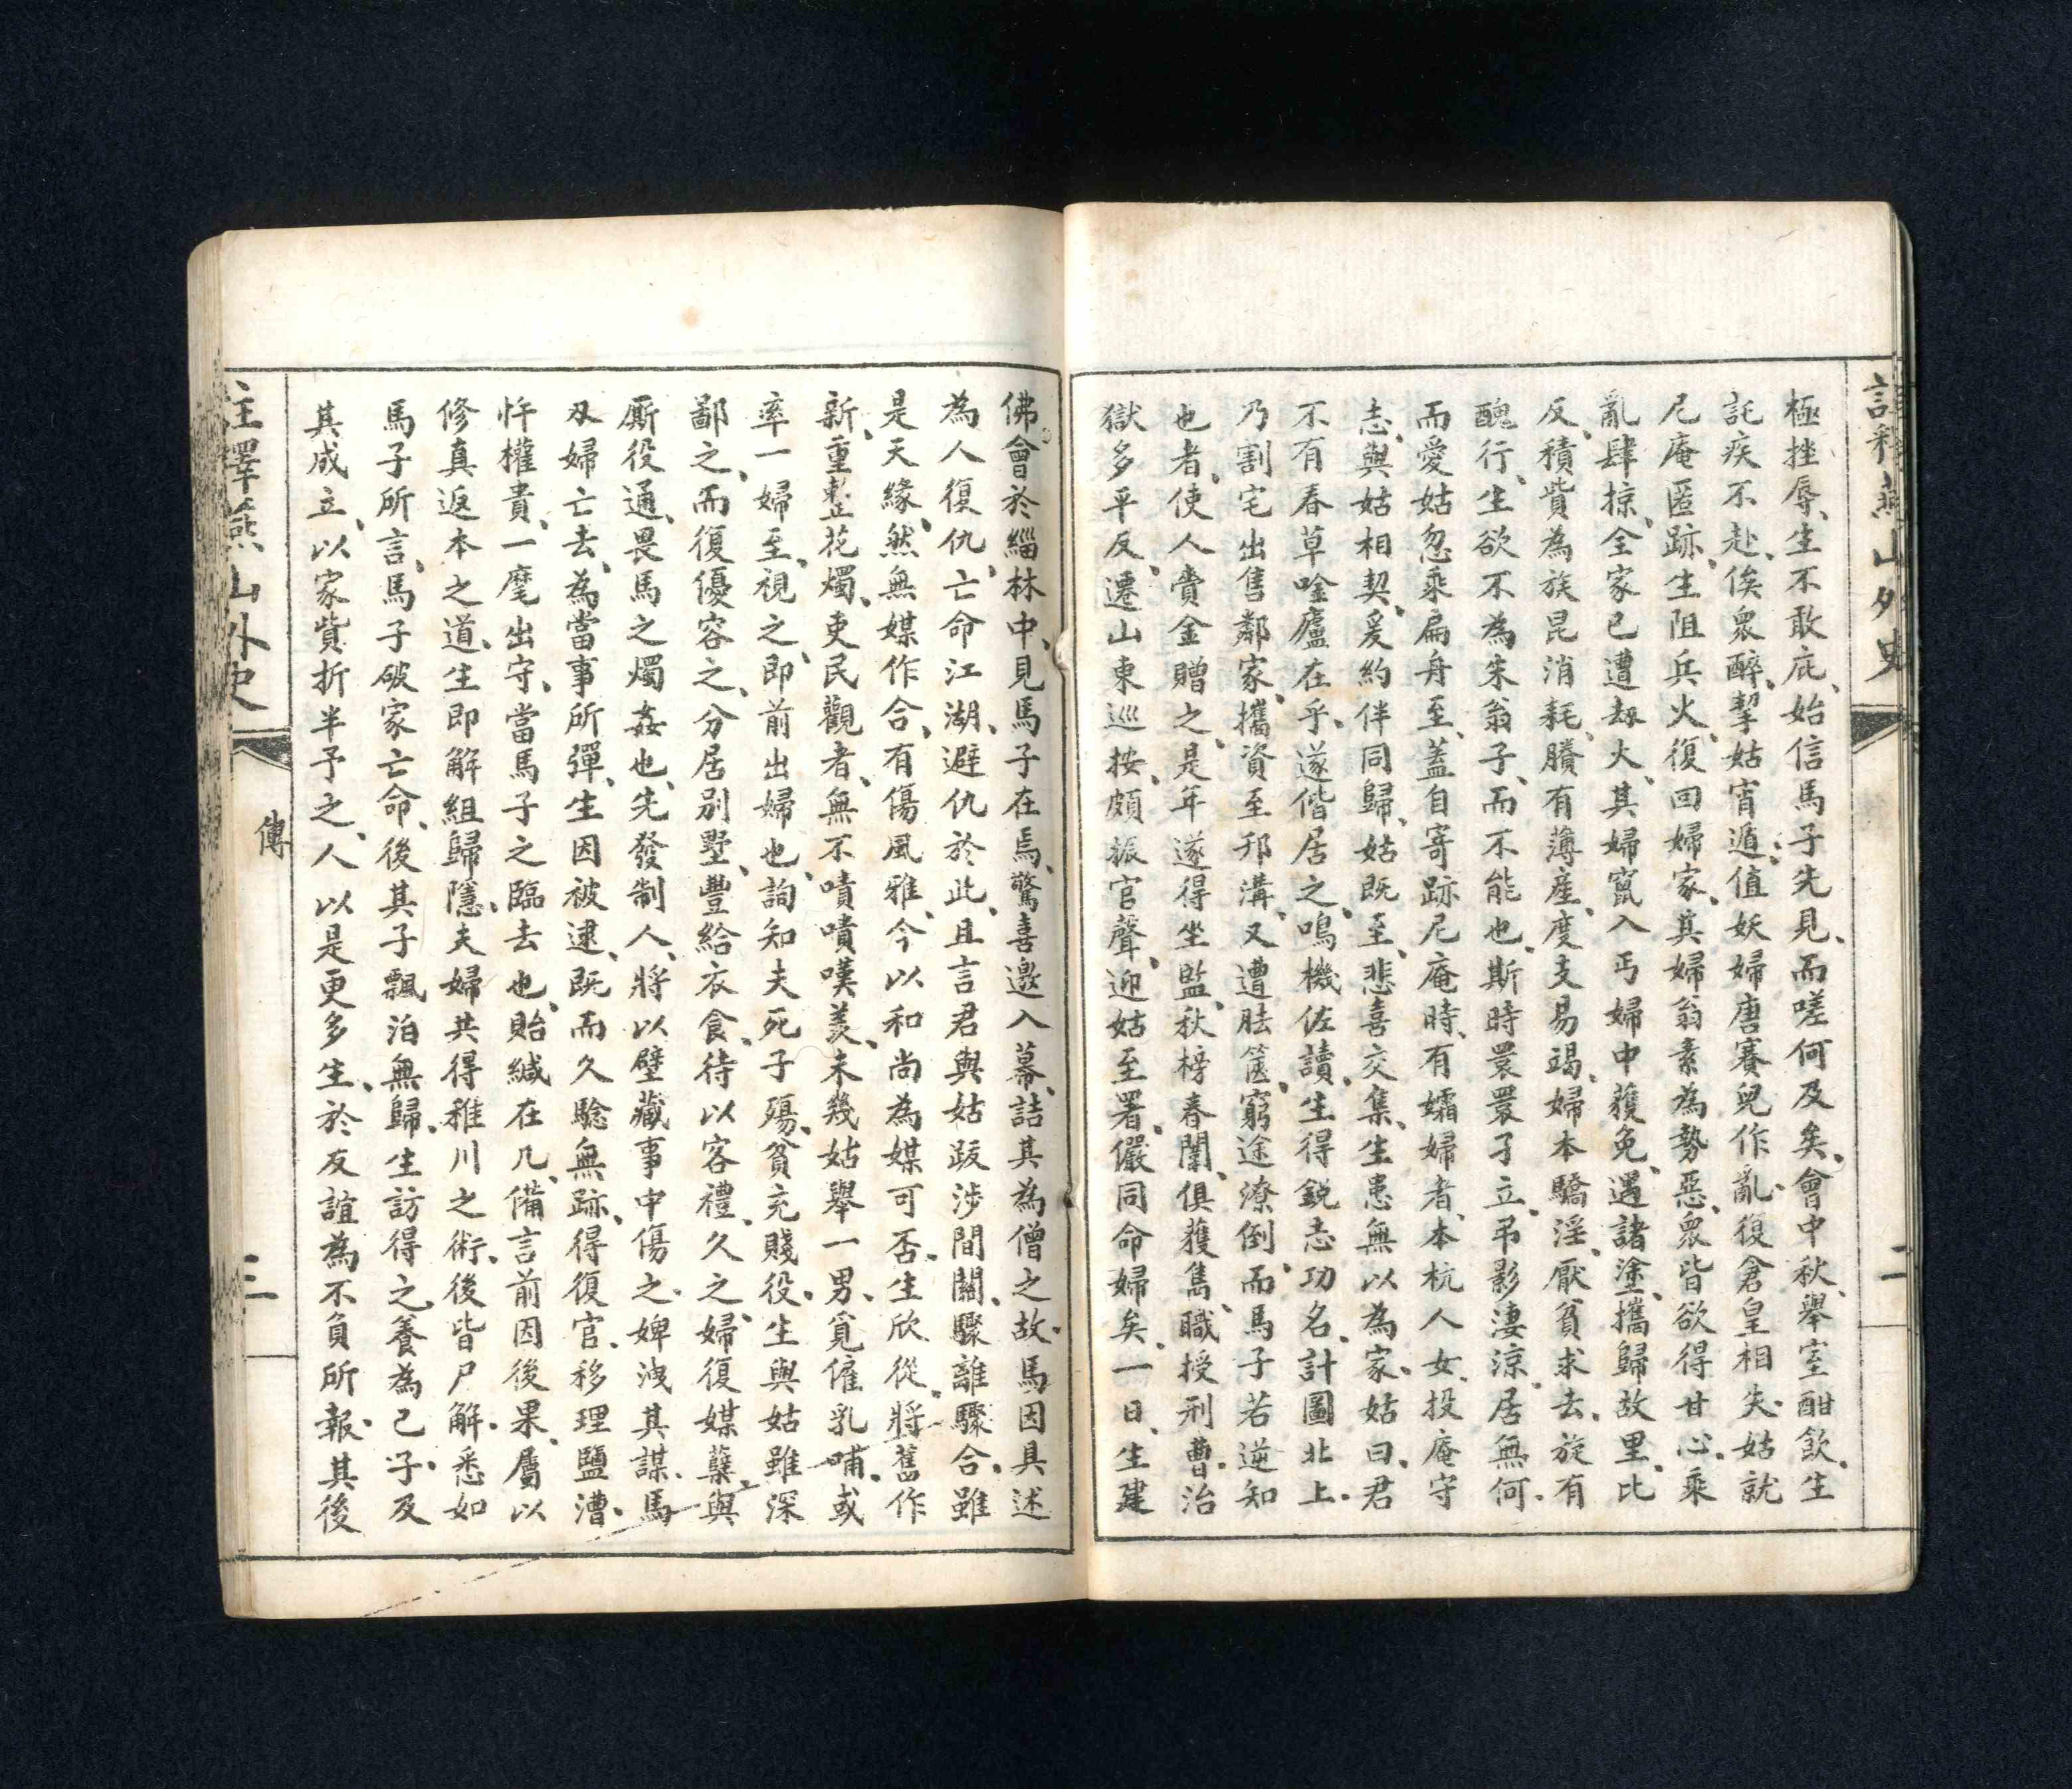 註釋燕山外史
二
極挫辱、生不敢庇、始信馬子先見、而嗟何及矣、會中秋、舉室酣飲、生
託疾不赴、俟衆醉、挈姑宵遁、值妖婦唐賽兒作亂、復倉皇相失、姑就
尼庵匿跡、生阻兵火、復回婦家、其婦翁素為勢惡、衆皆欲得甘心、乘
亂肆掠、全家已遭劫火、其婦竄入丐婦中獲免、遇諸塗、攜歸故里、比
反、積貲為族昆消耗、賸有薄產、度支易竭、婦本驕淫、厭貧求去、旋有
醜行、生欲不為朱翁子、而不能也、斯時睘睘孑立、弔影淒涼、居無何、
而愛姑忽乘扁舟至、蓋自寄跡尼庵時、有孀婦者、本杭人女、投庵守
志、與姑相契、爰約伴同歸、姑既至、悲喜交集、生患無以為家、姑曰、君
不有春草唫廬在乎、遂偕居之、鳴機佐讀、生得銳志功名、計圖北上、
乃割宅出售鄰家、攜資至邗溝、又遭胠篋、窮途潦倒、而馬子若逆知
也者、使人賫金贈之、是年遂得坐監、秋榜春闈、俱獲雋、職授刑曹、治
獄多平反、遷山東巡按、頗振官聲、迎姑至署、儼同命婦矣、一日、生建
佛會於緇林中、見馬子在焉、驚喜邀入幕、詰其為僧之故、馬因具述
為人復仇、亡命江湖、避仇於此、且言君與姑跋涉間關、驟離驟合、雖
是天緣、然無媒作合、有傷風雅、今以和尚為媒可否、生欣從、將舊作
新、重整花燭、吏民觀者、無不嘖嘖嘆羨、未幾姑舉一男、覓傭乳哺、或
率一婦至、視之、即前出婦也、詢知夫死子殤、貧充賤役、生與姑雖深
鄙之、而復優容之、分居別墅、豐給衣食、待以客禮、久之、婦復媒蘖與
廝役通、畏馬之燭姦也、先發制人、將以壁藏事中傷之、婢洩其謀、馬
及婦亡去、為當事所彈、生因被逮、既而久驗無跡、得復官、移理鹽漕、
忤權貴、一麾出守、當馬子之臨去也、貽緘在几、備言前因後果、屬以
修真返本之道、生即解組歸隱、夫婦其得稚川之術、後皆尸解、悉如
馬子所言、馬子破家亡命、後其子飄泊無歸、生訪得之、養為己子、及
其成立、以家貲折半予之、人以是更多生、於友誼為不負所報、其後
註釋燕山外史
傳
三